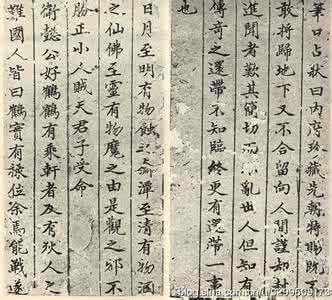 筆口占狀曰内府珍藏先朝特賜既
敢將歸地下又不合留向人間謹却
進聞者歎其簡切而不亂世人但知有
傳奇之還帶不知臨終更有還帶一書
也
日月至明有物蝕之潭至清有物溷
之仙佛至靈有物魔之由是觀之邪不
勝正小人賊天君子受命
衛懿公好鶴鶴有乘軒者及有狄人之
難國人皆曰鶴實有祿位余焉能戰遂